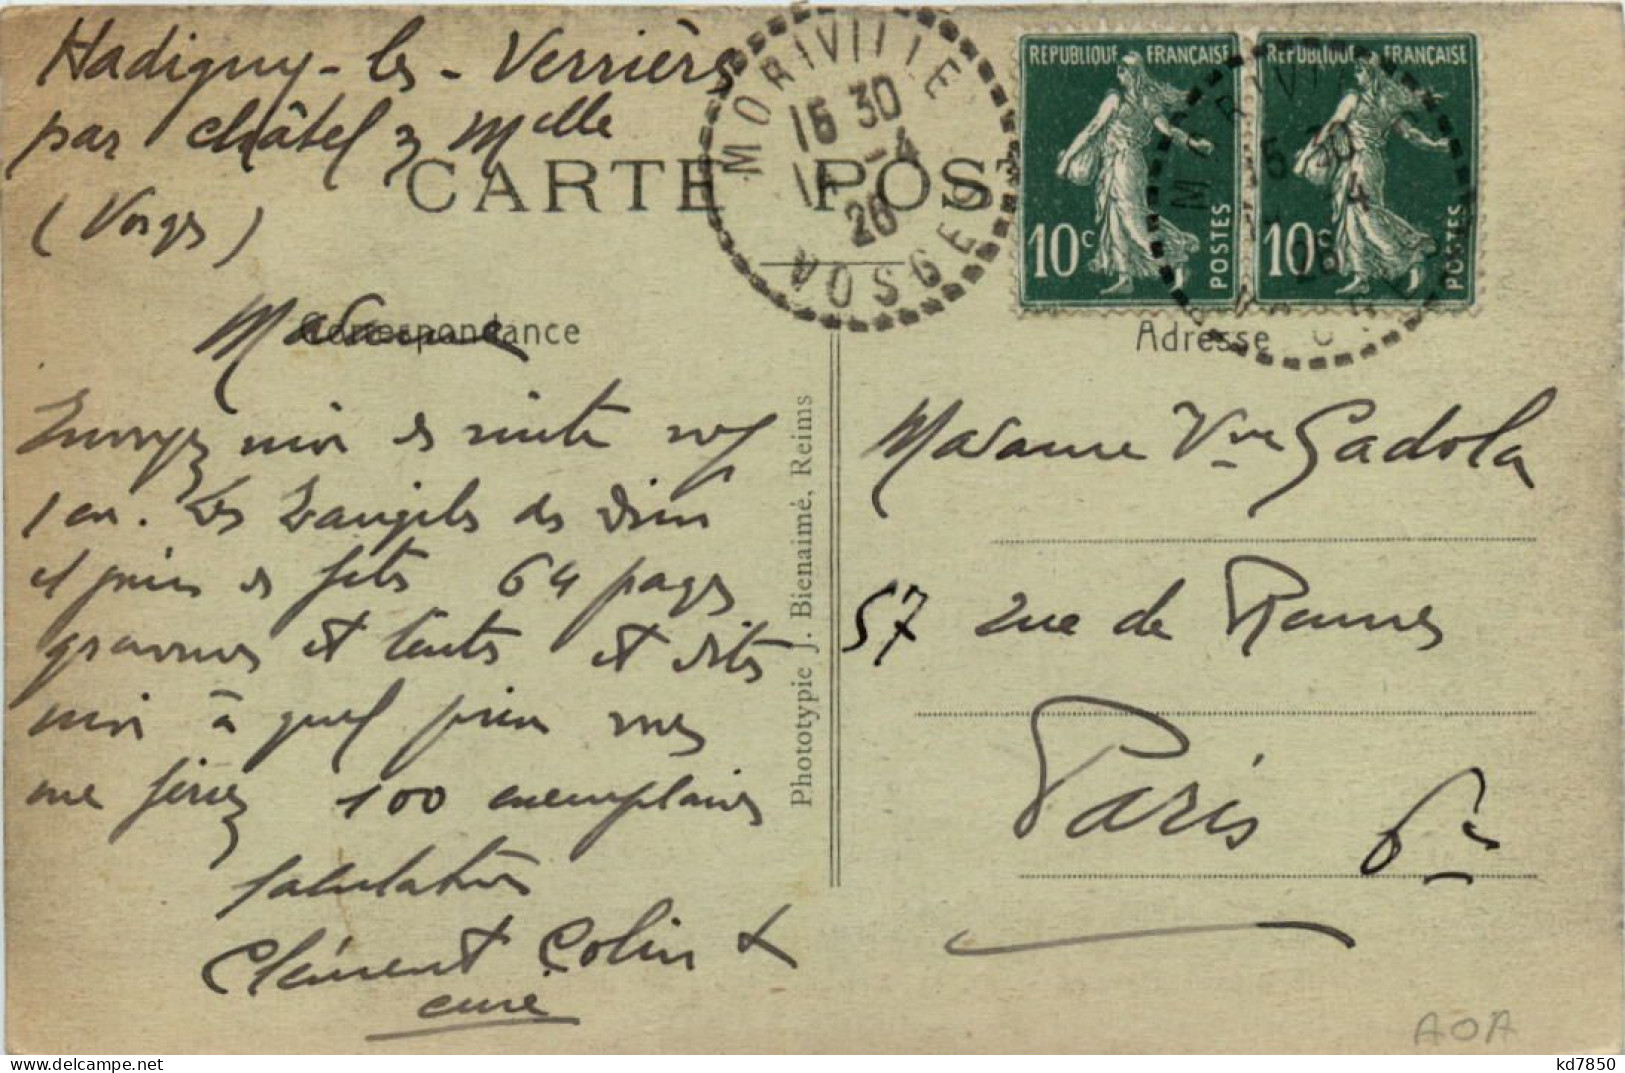 Hadigny-les-Verrières
par Châtel s Mlle
(Vosges)
CARTE POS
MORIVILLE
15 30
14 - 4
26
VOSGES
REPUBLIQUE FRANÇAISE
10c POSTES
REPUBLIQUE FRANÇAISE
10c POSTES
Correspondance
Madame
Envoyez moi de suite
1 ex. Les Evangiles des Dim
et prières des fêtes 64 pages
gravures et textes et dites
moi à quel prix vous
me ferez 100 exemplaires
salutations
Clément Colin
curé
Phototypie J. Bienaimé, Reims
Adresse
Madame Vve Gadola
57 rue de Rennes
Paris 6e
AOA
kd7850